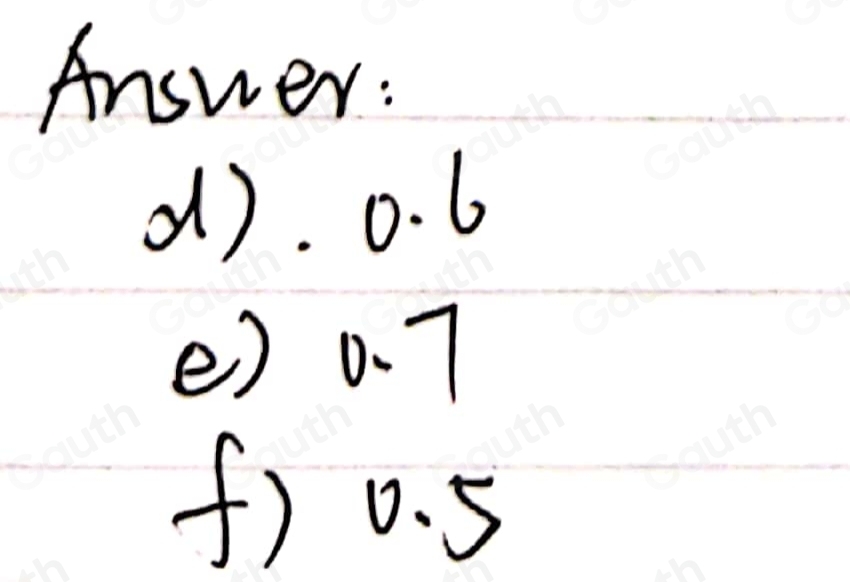 Answer:
d). 0.6
e) 0.7
f) 0.5